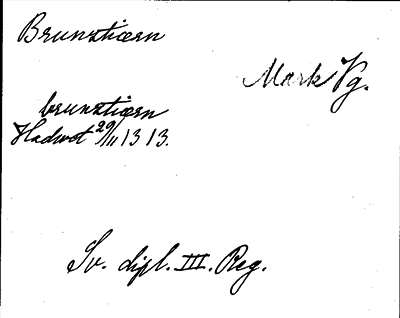 Brunstiærn
Mark Vg.
brunstiærn
Hadwot 29/11 1313.
Sv. dipl. III. Reg.